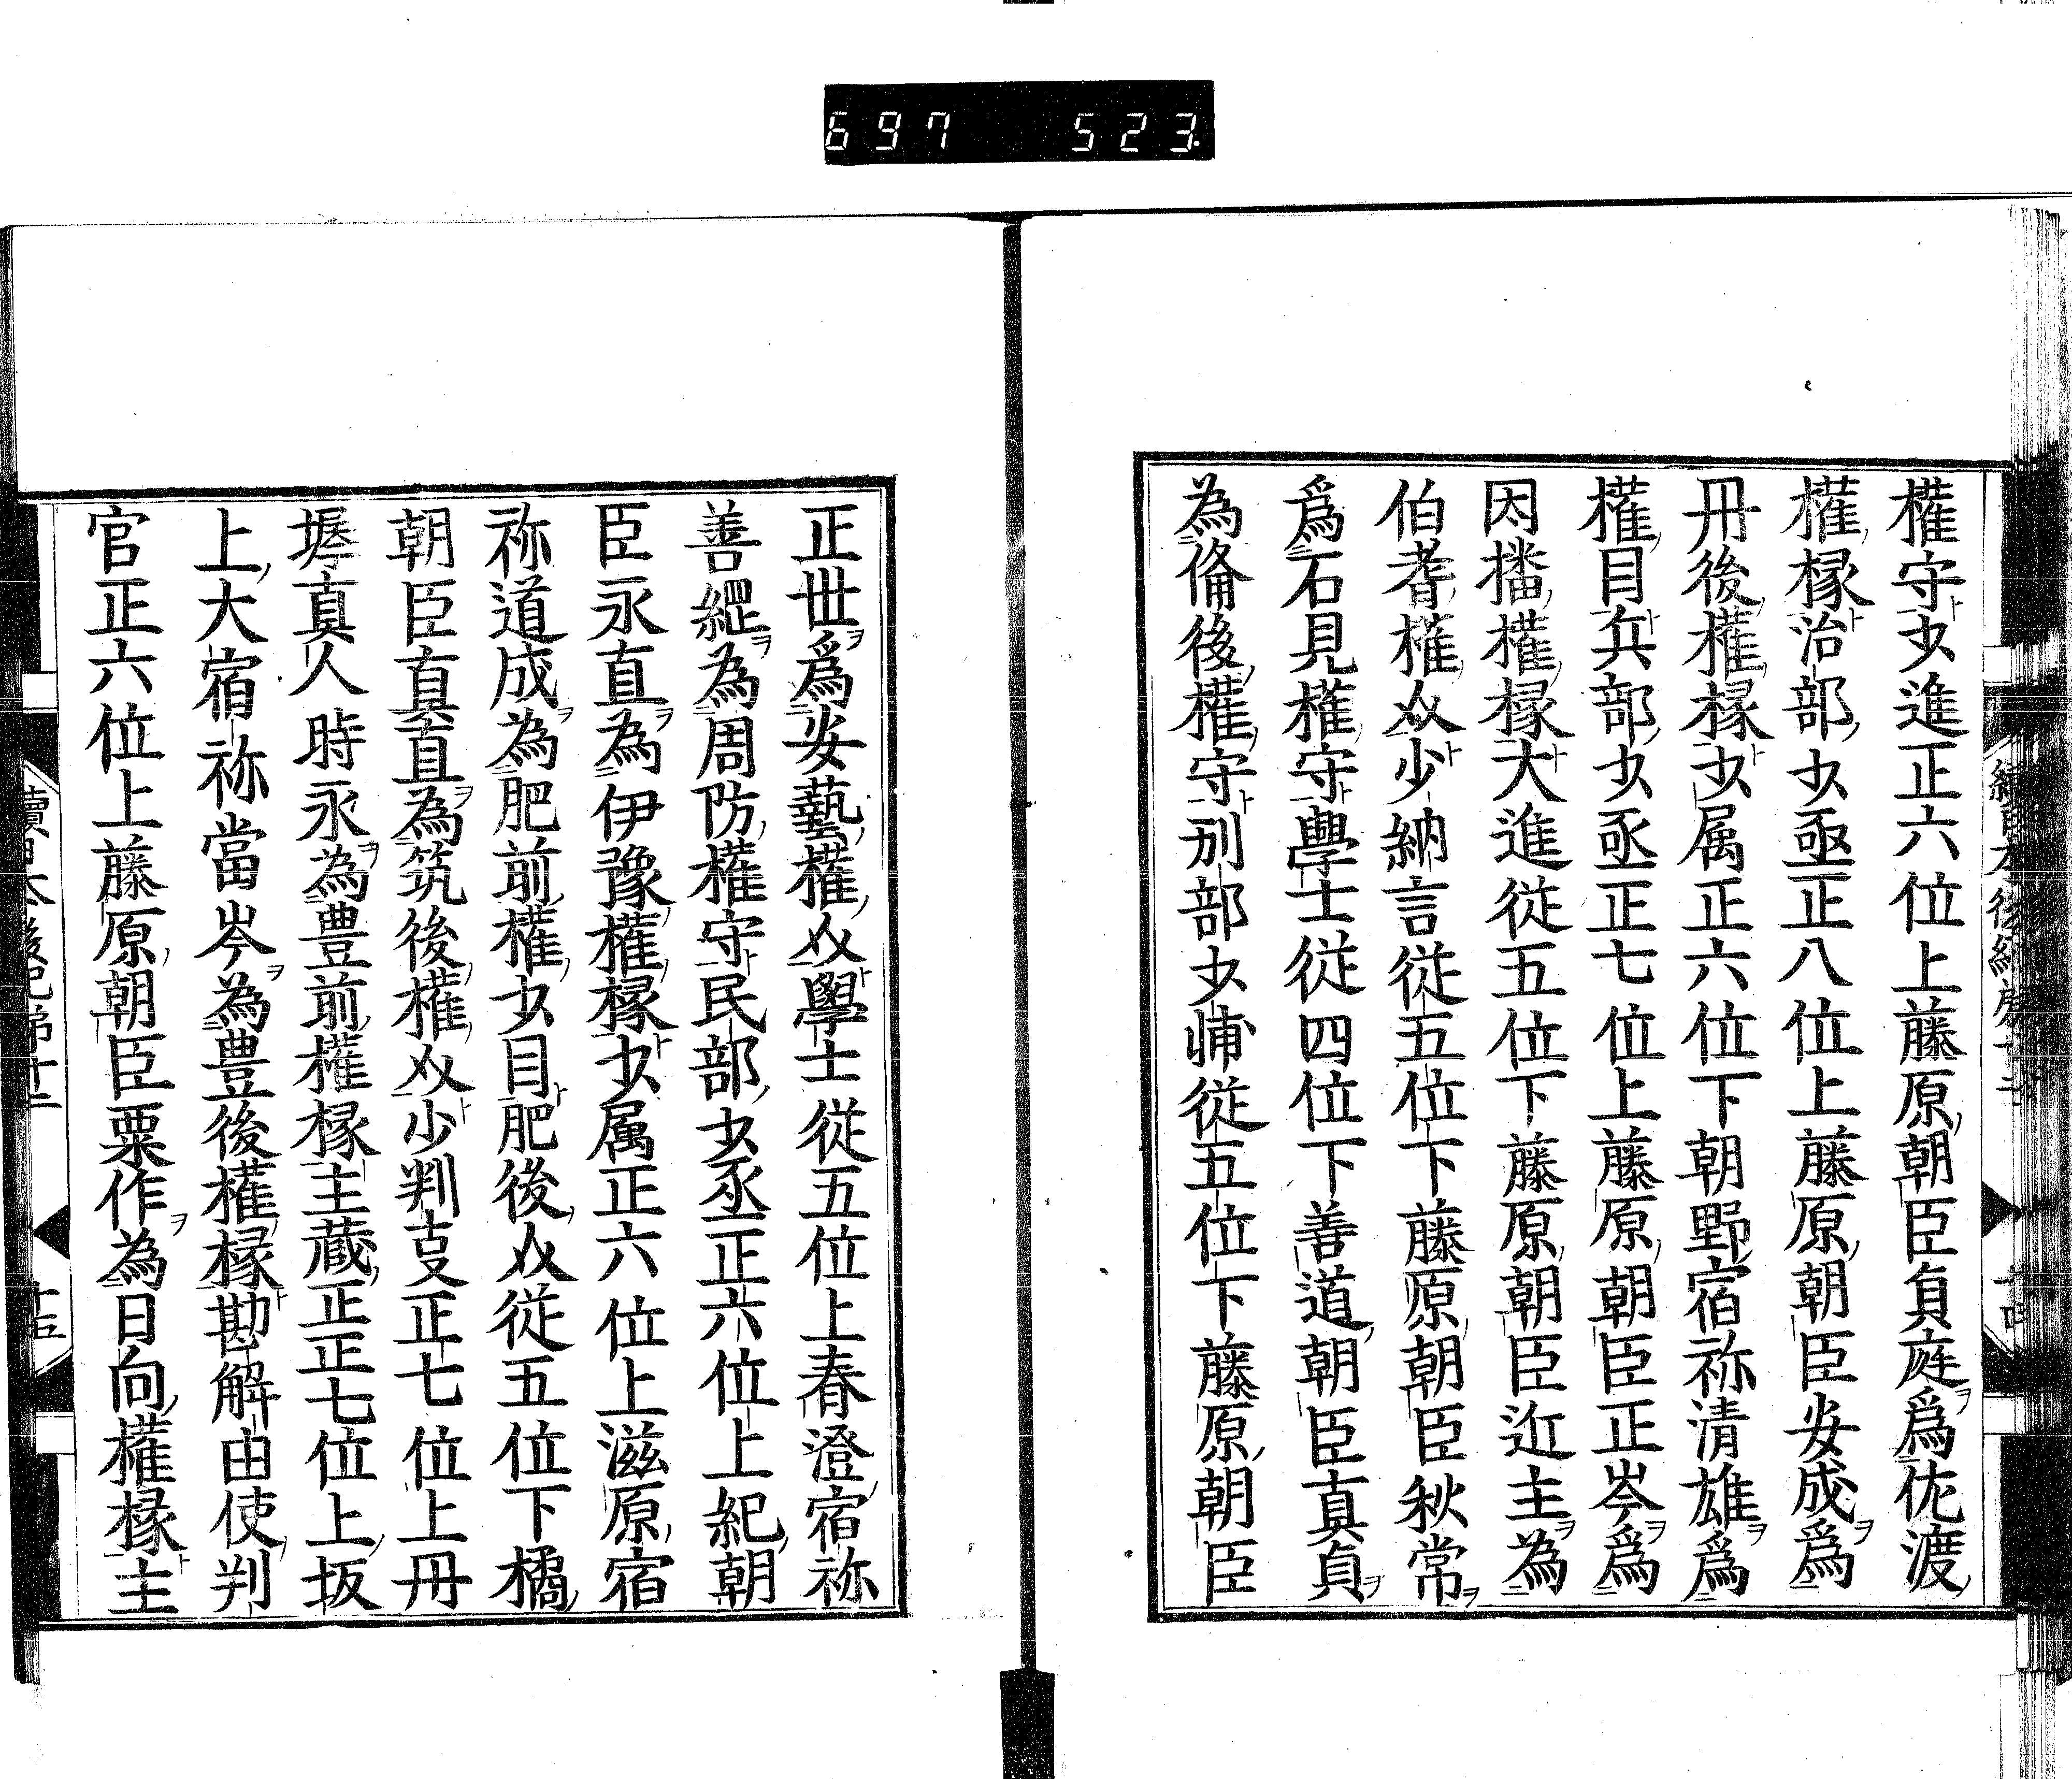 697 523
權守、ト少進正六位上藤原朝臣貞庭ヲ爲佐渡
權椽ト治部少丞正八位上藤原朝臣安成ヲ爲
丹後權椽ト少属正六位下朝野宿祢清雄ヲ爲
權目ト兵部少丞正七位上藤原朝臣正岑ヲ爲
因播權椽ト大進従五位下藤原朝臣近主ヲ為
伯耆權介ト少納言従五位下藤原朝臣秋常ヲ
爲石見權守ト學士従四位下善道朝臣真貞ヲ
為俻後權守ト刑部少輔従五位下藤原朝臣
正世ヲ爲安藝權介ト學士従五位上春澄宿祢
善繩ヲ為周防權守ト民部少丞正六位上紀朝
臣永直ヲ為伊豫權椽ト少属正六位上滋原宿
祢道成ヲ為肥前權少目ト肥後介従五位下橘
朝臣真直ヲ為筑後權介ト少判叓正七位上丹
墀真人時永ヲ為豊前權椽主蔵正正七位上坂
上大宿祢當岑ヲ為豊後權椽ト勘解由使判
官正六位上藤原朝臣粟作ヲ為日向權椽ト主
續日本後紀